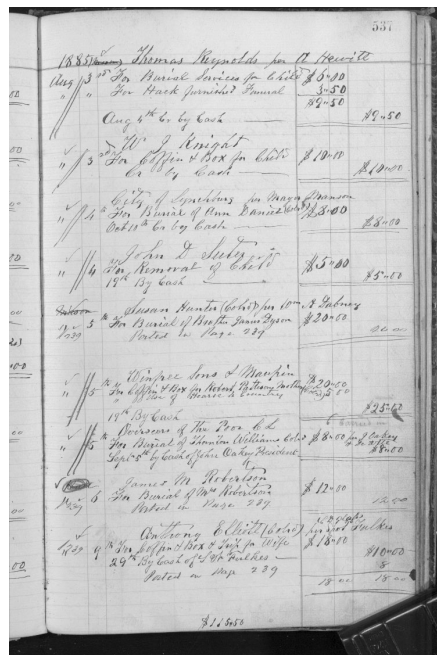 537
1885 Thomas Reynolds per A Hewitt
Aug 3rd For Burial Services for Child $6.00
" " For Hack furnished Funeral 3.50
$9.50
Aug 4th Cr by Cash $9.50
W J Knight
" 3rd For Coffin & Box for Child $10.00
Cr by Cash $10.00
City of Lynchburg per Mayor Manson
" 4th For Burial of Ann Daniel (Cold) $8.00
Oct 10th Cr by Cash $8.00
John D Suter
" 4 For Removal of Child $5.00
19th By Cash $5.00
Susan Hunter (Cold) per Wm A Dabney
5th For Burial of Brother James Dyson $20.00
Posted on Page 239
Winfree Sons & Maupin
" 5th For Coffin & Box for Robert $20.00
" " Hire of Hearse to Country 5.00
$25.00
19th By Cash
Overseers of the Poor
" 5th For Burial of Thornton Williams Cold $8.00
Sept 5th by Cash of John Oakey President $8.00
James M Robertson
" 6 For Burial of Mrs Robertson $12.00
Posted on Page 239 12.00
Anthony Elliott (Cold)
239 9th For Coffin & Box & for Wife $18.00
29th By Cash of Faulkes $10.00
Posted on Page 239 8
18 00 18 00
$115.50